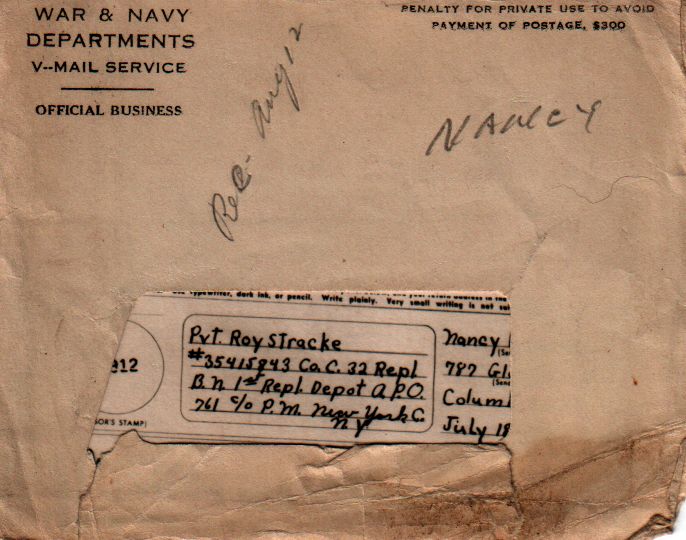 WAR & NAVY
DEPARTMENTS
V--MAIL SERVICE
OFFICIAL BUSINESS
PENALTY FOR PRIVATE USE TO AVOID
PAYMENT OF POSTAGE, $300
Rec- Aug 12
NANCY
typewriter, dark ink, or pencil. Write plainly. Very small writing is not
Pvt. Roy Stracke
#35415943 Co. C. 32 Repl
B.N. 1st Repl. Depot A.P.O.
761 c/o P.M. New York C.
N Y
912
OR'S STAMP)
Nancy
787 Gl
Colum
July 18